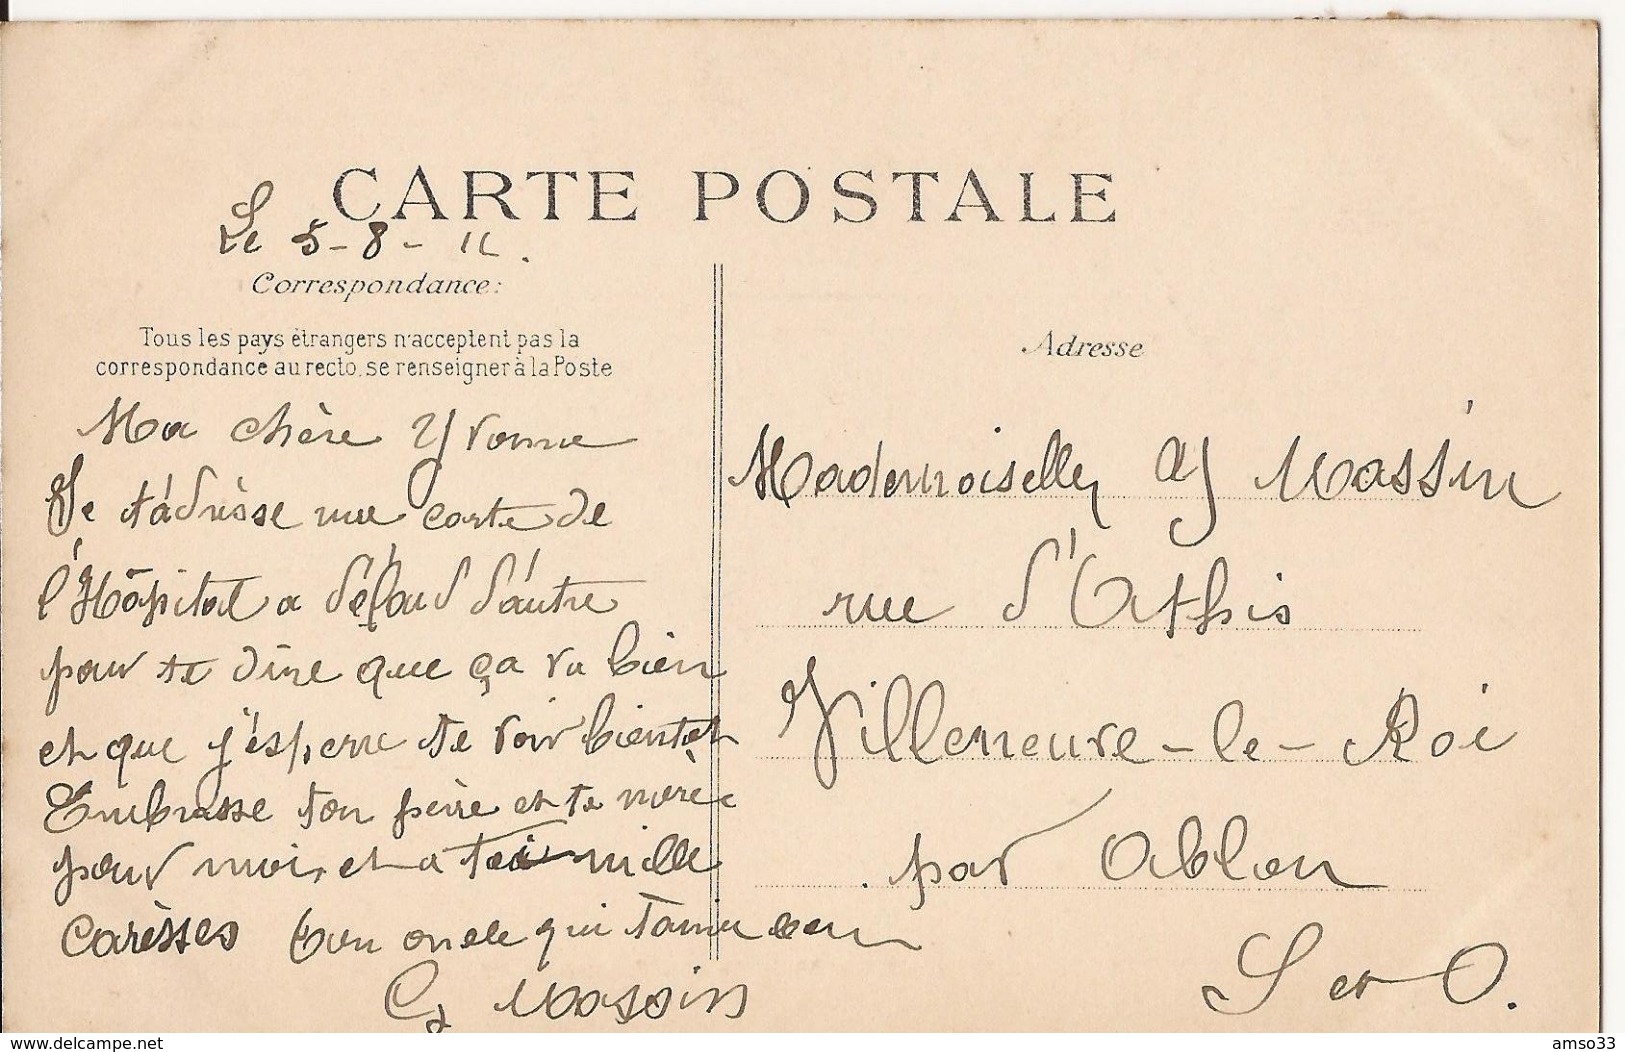 CARTE POSTALE
Le 5-8-11.
Correspondance:
Tous les pays étrangers n'acceptent pas la
correspondance au recto, se renseigner à la Poste
Ma chère Yvonne
Je t'adrèsse une carte de
l'Hôpital a défaud d'autre
pour te dire que ça va bien
et que j'esperre te voir bientôt
Embrasse ton père et ta mère
pour moi, et a toi mille
carèsses ton oncle qui t'aime bien
G Massin
Adresse
Mademoiselle Y Massin
rue d'Athis
Villeneuve-le-Roi
par Ablon
S et O.
www.delcampe.net
amso33